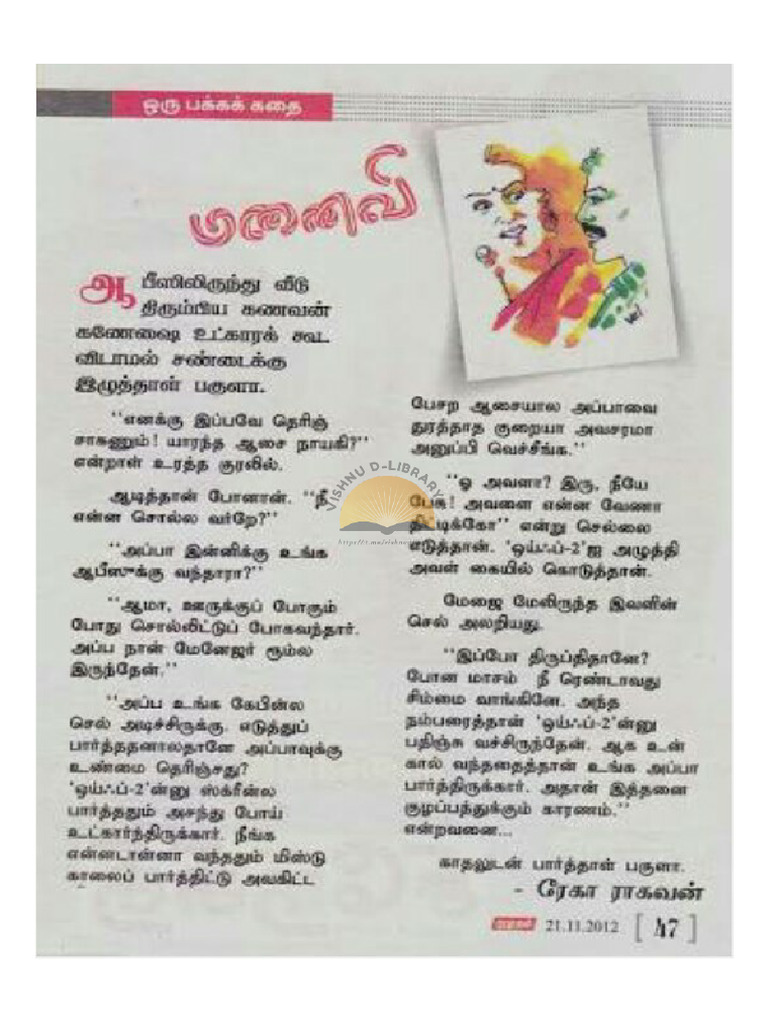 ஒரு பக்கக் கதை
மனைவி
ஆபீஸிலிருந்து வீடு
திரும்பிய கணவன்
கணேஷை உட்காரக் கூட
விடாமல் சண்டைக்கு
இழுத்தாள் பகுளா.
“எனக்கு இப்பவே தெரிஞ்
சாகணும்! யாரந்த ஆசை நாயகி?”
என்றாள் உரத்த குரலில்.
ஆடித்தான் போனான். “நீ
என்ன சொல்ல வர்றே?”
“அப்பா இன்னிக்கு உங்க
ஆபீஸுக்கு வந்தாரா?”
“ஆமா, ஊருக்குப் போகும்
போது சொல்லிட்டுப் போகவந்தார்.
அப்ப நான் மேனேஜர் ரூம்ல
இருந்தேன்.”
“அப்ப உங்க கேபின்ல
செல் அடிச்சிருக்கு. எடுத்துப்
பார்த்ததனாலதானே அப்பாவுக்கு
உண்மை தெரிஞ்சது?
‘ஒய்ஃப்-2’ன்னு ஸ்க்ரீன்ல
பார்த்ததும் அசந்து போய்
உட்கார்ந்திருக்கார். நீங்க
என்னடான்னா வந்ததும் மிஸ்டு
காலைப் பார்த்திட்டு அவகிட்ட
பேசற ஆசையால அப்பாவை
துரத்தாத குறையா அவசரமா
அனுப்பி வெச்சீங்க.”
“ஓ அவளா? இரு, நீயே
பேசு! அவளை என்ன வேணா
திட்டிக்கோ” என்று செல்லை
எடுத்தான். ‘ஒய்ஃப்-2’ஐ அழுத்தி
அவள் கையில் கொடுத்தான்.
மேஜை மேலிருந்த இவளின்
செல் அலறியது.
“இப்போ திருப்திதானே?
போன மாசம் நீ ரெண்டாவது
சிம்மை வாங்கினே. அந்த
நம்பரைத்தான் ‘ஒய்ஃப்-2’ன்னு
பதிஞ்சு வச்சிருந்தேன். ஆக உன்
கால் வந்ததைத்தான் உங்க அப்பா
பார்த்திருக்கார். அதான் இத்தனை
குழப்பத்துக்கும் காரணம்.”
என்றவனை...
காதலுடன் பார்த்தாள் பகுளா.
- ரேகா ராகவன்
குமுதம் 21.11.2012 [ 47 ]
VISHNU D-LIBRARY